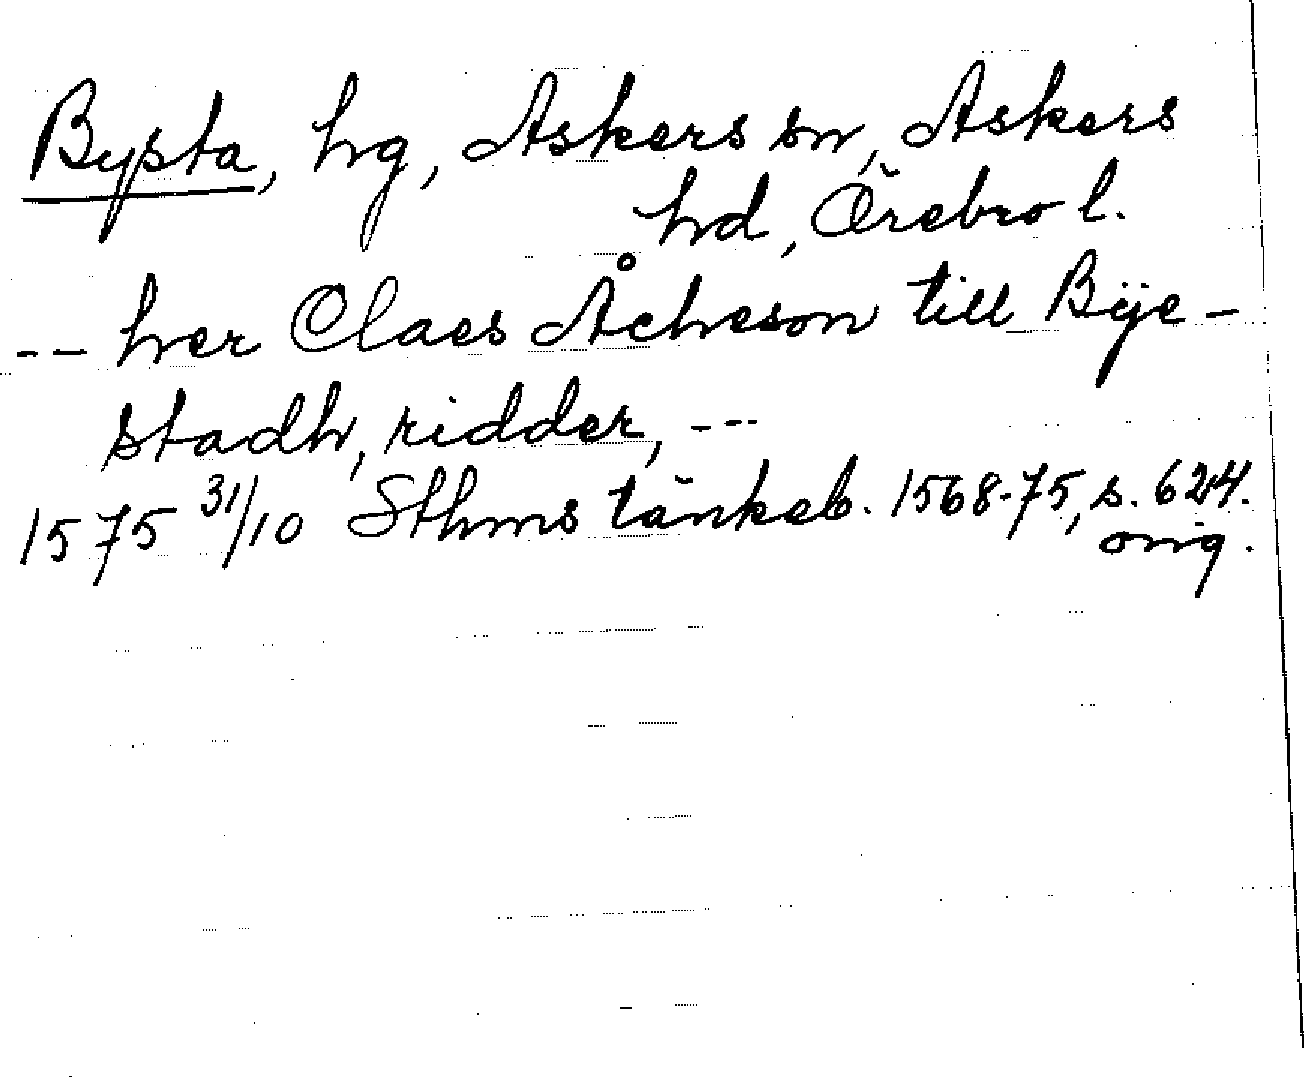 Bysta, hg, Askers sn, Askers
hd, Örebro l.
-- her Claes Åcheson till Bÿe-
stadh, ridder, ---
1575 31/10 Sthms tänkeb. 1568-75, s. 624.
orig.